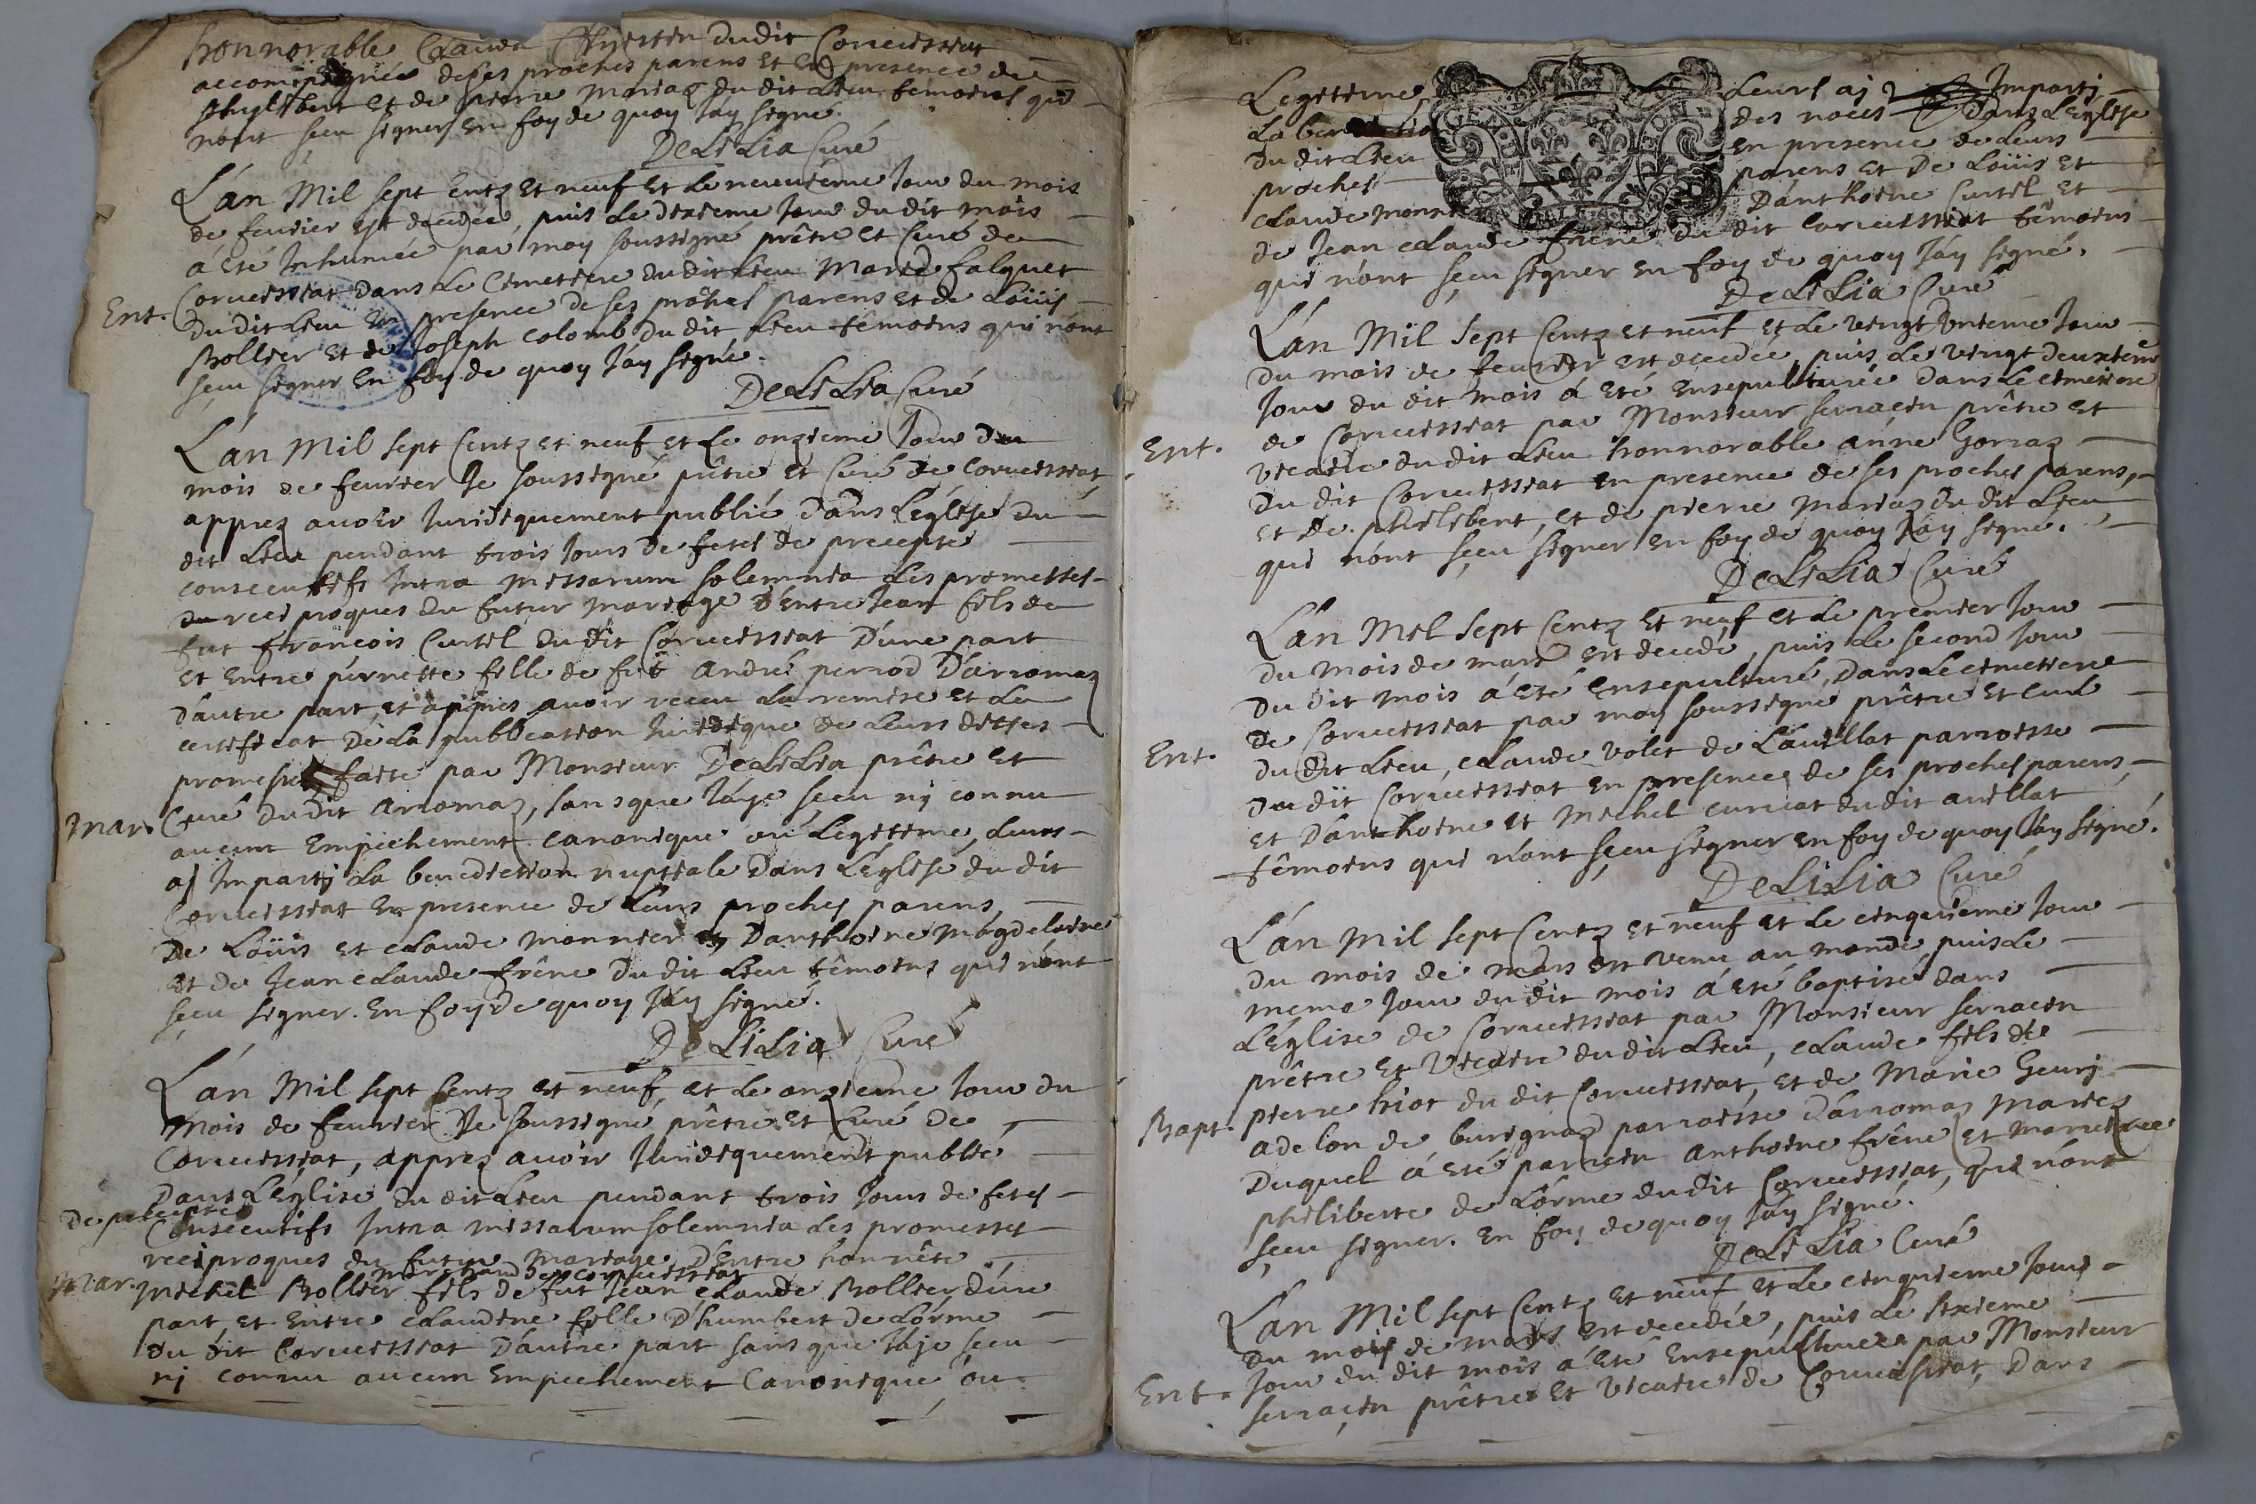 honnorable Clauda Chrestin dudit Coruessiat
accompagnée de ses proches parens et en presence de
phylibert et de pierre Mariaz du dit Lieu temoins qui
nont sçeu signer en foy de quoy Jáy signé.
DeLiLia Curé
L'án Mil sept Centz et neuf et Le neuuiéme Jour du mois
de feurier est decedée, puis Le dixieme Jour du dit mois
á eté Inhumée par moy soussigné prêtre et Curé de
Ent. Coruessiat dans Le Cimetiere du dit Lieu Marie falquet
du dit Lieu en presence de ses prôhes parens et de Loüis
Bollier et de Joseph Colomb du dit Lieu têmoins qui nónt
sçeu signer en foy de quoy Jáy signé.
DeLiLia Curé
L'án Mil sept Centz et neuf et Le onzieme Jour du
mois de feurier Je soussigné prêtre et Curé de Coruessiat
apprez auoir Juridiquement publié dans L'église du
dit Lieu pendant trois Jours de fetes de precepte
consecutifs Intra missarum solemnia Les promesses
reciproques du futur mariage d'Entre Jean fils de
fut françois Curtil du dit Coruessiat d'une part
et Entre pernette fille de fut André perrod D'arromaz
dautre part, et apprés auoir receu La remise et La
certificat De La publication Juridique de Leurs dittes
promesses faite par Monsieur DeLiLia prêtre et
Mar. Curé du dit Arromaz, sans que Jáye sçeu nj connu
aucunt Empechement canonique oú Legitime, Leurs
aj Imparti La benediction nuptiale Dans L'église du dit
Coruessiat en presence de Leurs proches parens,
De Loüis et cLaude monnier Danthoine Magdelaine
et de Jean cLaude frêne du dit Lieu têmoins qui nónt
sçeu signer. En foy de quoy Jáy signé.
DeLiLia Curé
L'án Mil sept Centz et neuf, et Le onzieme Jour du
Mois de feurier Je soussigné prêtre et Curé de
Coruessiat, apprez auoir Juridiquement publié
Dans L'église du dit Lieu pendant trois Jours de fetes
De precepte Consecutifs Intra missarum solemnia Les promesses
reciproques du futur mariage D'Entre honnête
marchand de Coruessiat
Mar. Michel Bollier fils de fut Jean cLaude Bollier dúne
part et Entre cLaudine fille D'humbert de Lórme
du dit Coruessiat D'áutre part sans que Jáje sceu
nj connu aucun Empechement Canonique óu
Legitime, Leurs aj Imparti
La benediction des noces Dans L'église
du dit Lieu en presence de Leurs
proches parens et De Loüis et
cLaude monnier Dánthoine Curtil et
de Jean cLaude frêne du dit Coruessiat têmoins
qui nónt sçeu signer en foy de quoy Jáy signé.
DeLiLia Curé
L'án Mil Sept Centz et neuf et Le vingt Vnieme Jour
du mois de feurier est decedée, puis Le vingt deuxieme
Jour du dit mois á eté Ensepulturée dans Le cimetiere
de Coruessiat par Monsieur serracin prêtre et
Ent. vicaire du dit Lieu honnorable anne Gorraz
du dit Coruessiat en presence de ses proches parens,
et de philibert, et de pierre mariaz du dit Lieu
qui nónt sçeu signer en foy de quoy Jáy signé.
DeLiLia Curé
L'án Mil Sept Centz et neuf et Le premier Jour
du mois de mars est decedé, puis Le second Jour
du dit mois á eté Ensepulturé, Dans Le cimetiere
de Coruessiat par moy soussigné prêtre et curé
Ent. du dit Lieu, cLaude volet de Láuillat parroisse
du dit Coruessiat en presence, de ses proches parens,
et D'ánthoine et Michel curuat du dit auillat
têmoins qui nónt sçeu signer en foy de quoy Jáy signé.
DeLiLia Curé
L'án Mil Sept Centz et neuf et Le cinquieme Jour
du mois de mars est venu au monde, puis Le
meme Jour du dit mois á eté baptisé dans
L'église de Coruessiat par Monsieur serracin
prêtre et vicaire du dit Lieu, cLaude fils de
pierre hiot du dit Coruessiat, et de Marie Geurj
Bapt. adelon de burignaz parroisse d'arromaz mariez
Duquel á eté parrein anthoine frêne et marreine
philiberte de Lôrme du dit Coruessiat, qui nónt
sçeu signer. En foy de quoy Jáy signé.
DeLiLia Curé
L'án Mil Sept Centz et neuf et Le cinquieme Jour
du mois de mars est decedée, puis Le sixieme
Ent. Jour du dit mois á eté Ensepulturée par Monsieur
serracin prêtre et vicaire de Coruessiat, Dans